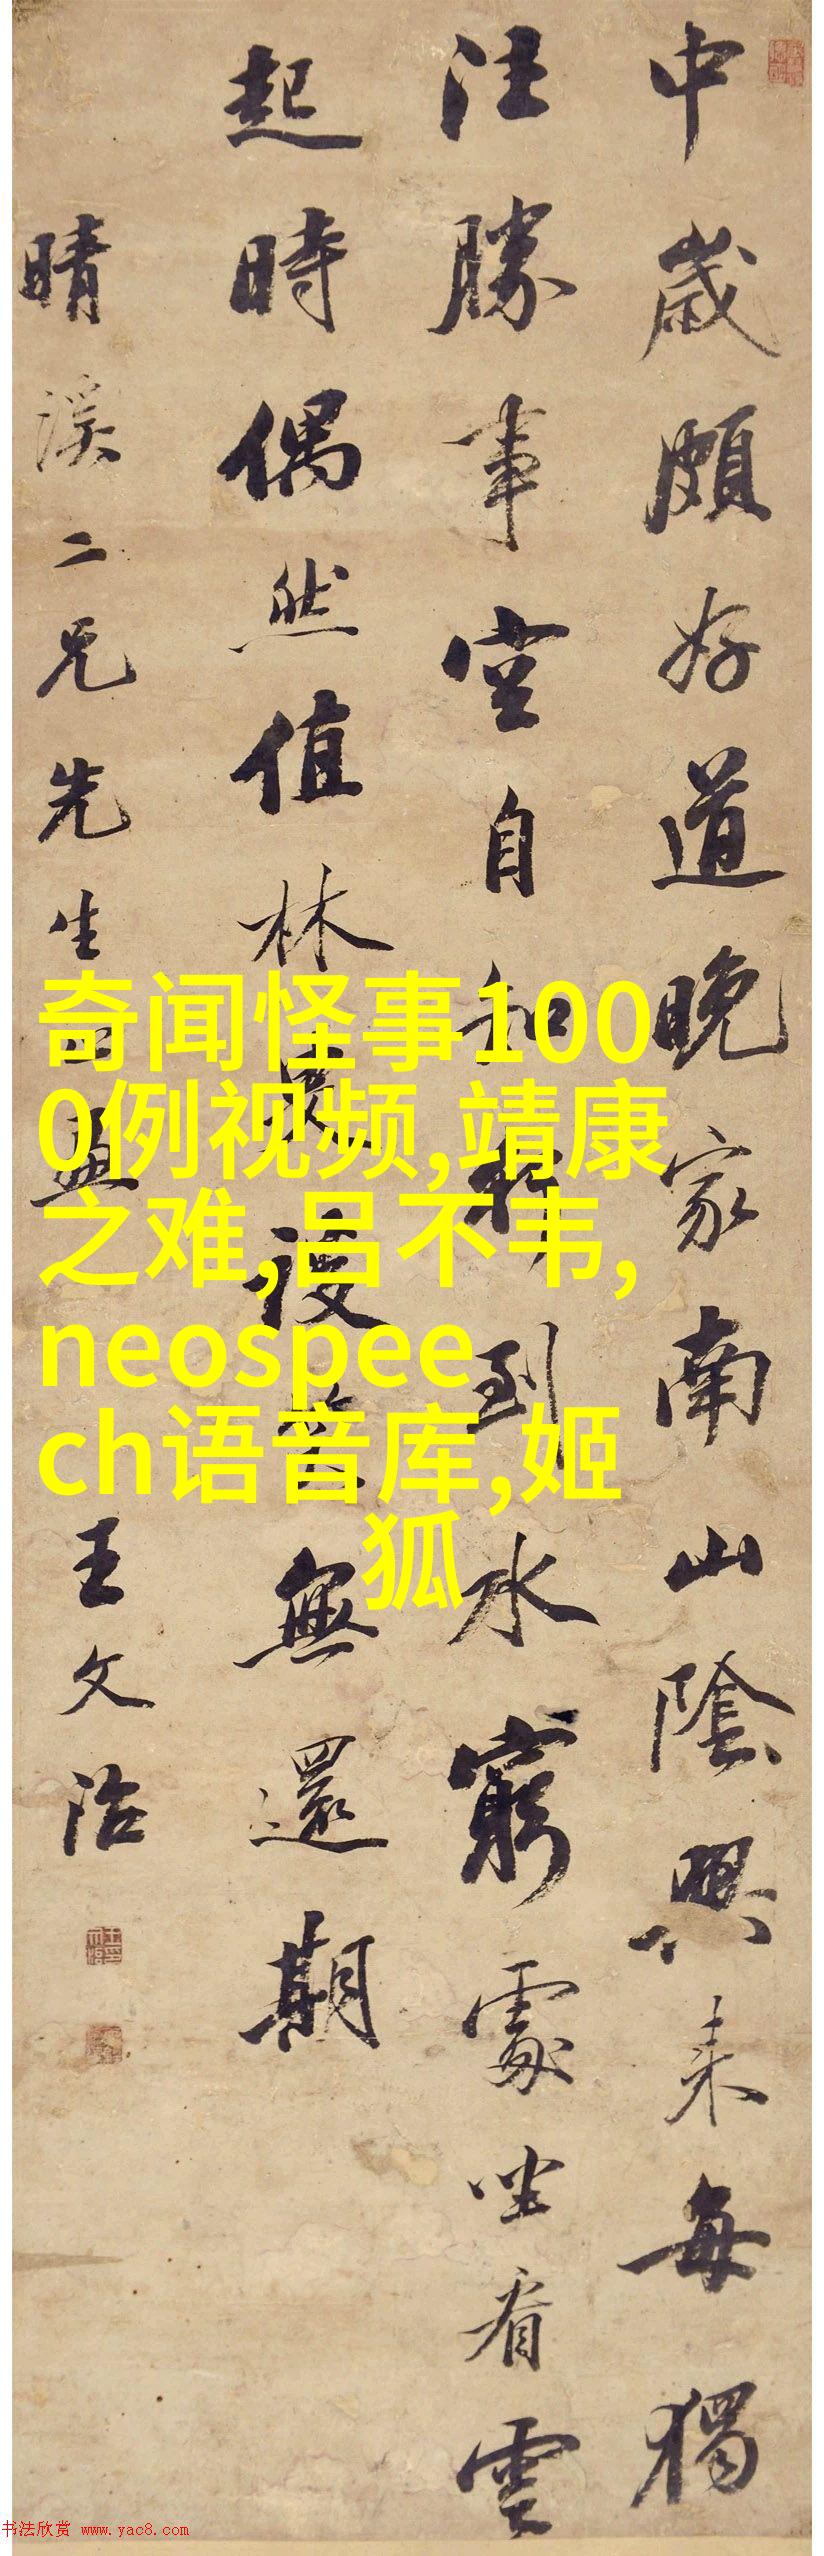 中歲頗好道晚家南山陰興来每獨
往勝事空自知行到水窮處坐看雲
起時偶然值林叟談笑無還期
晴溪二兄先生
王文治
奇闻怪事100
0例视频,靖康
之难,吕不韦,
neospee
ch语音库,姬
狐
书法欣赏 www.yac8.com